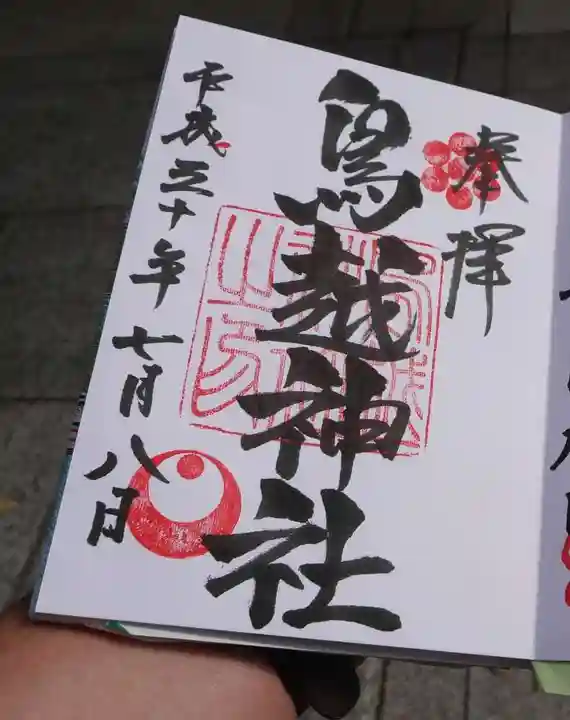 奉拝
鳥越神社
平成三十年七月八日